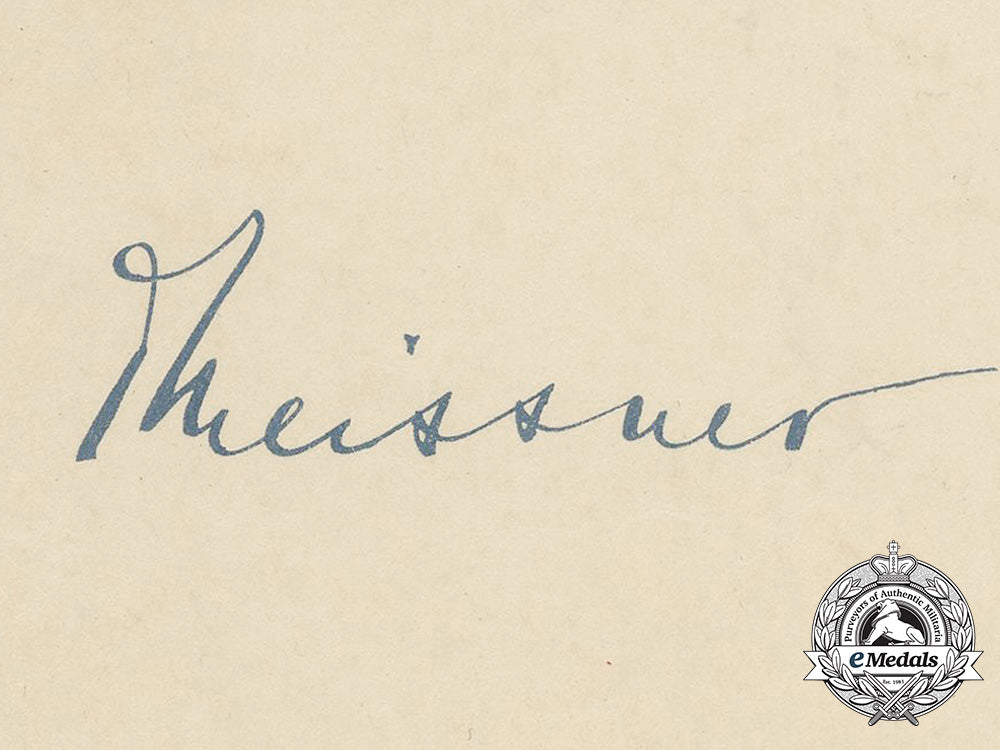 Meissner
Purveyors of Authentic Militaria
eMedals
Est. 1981